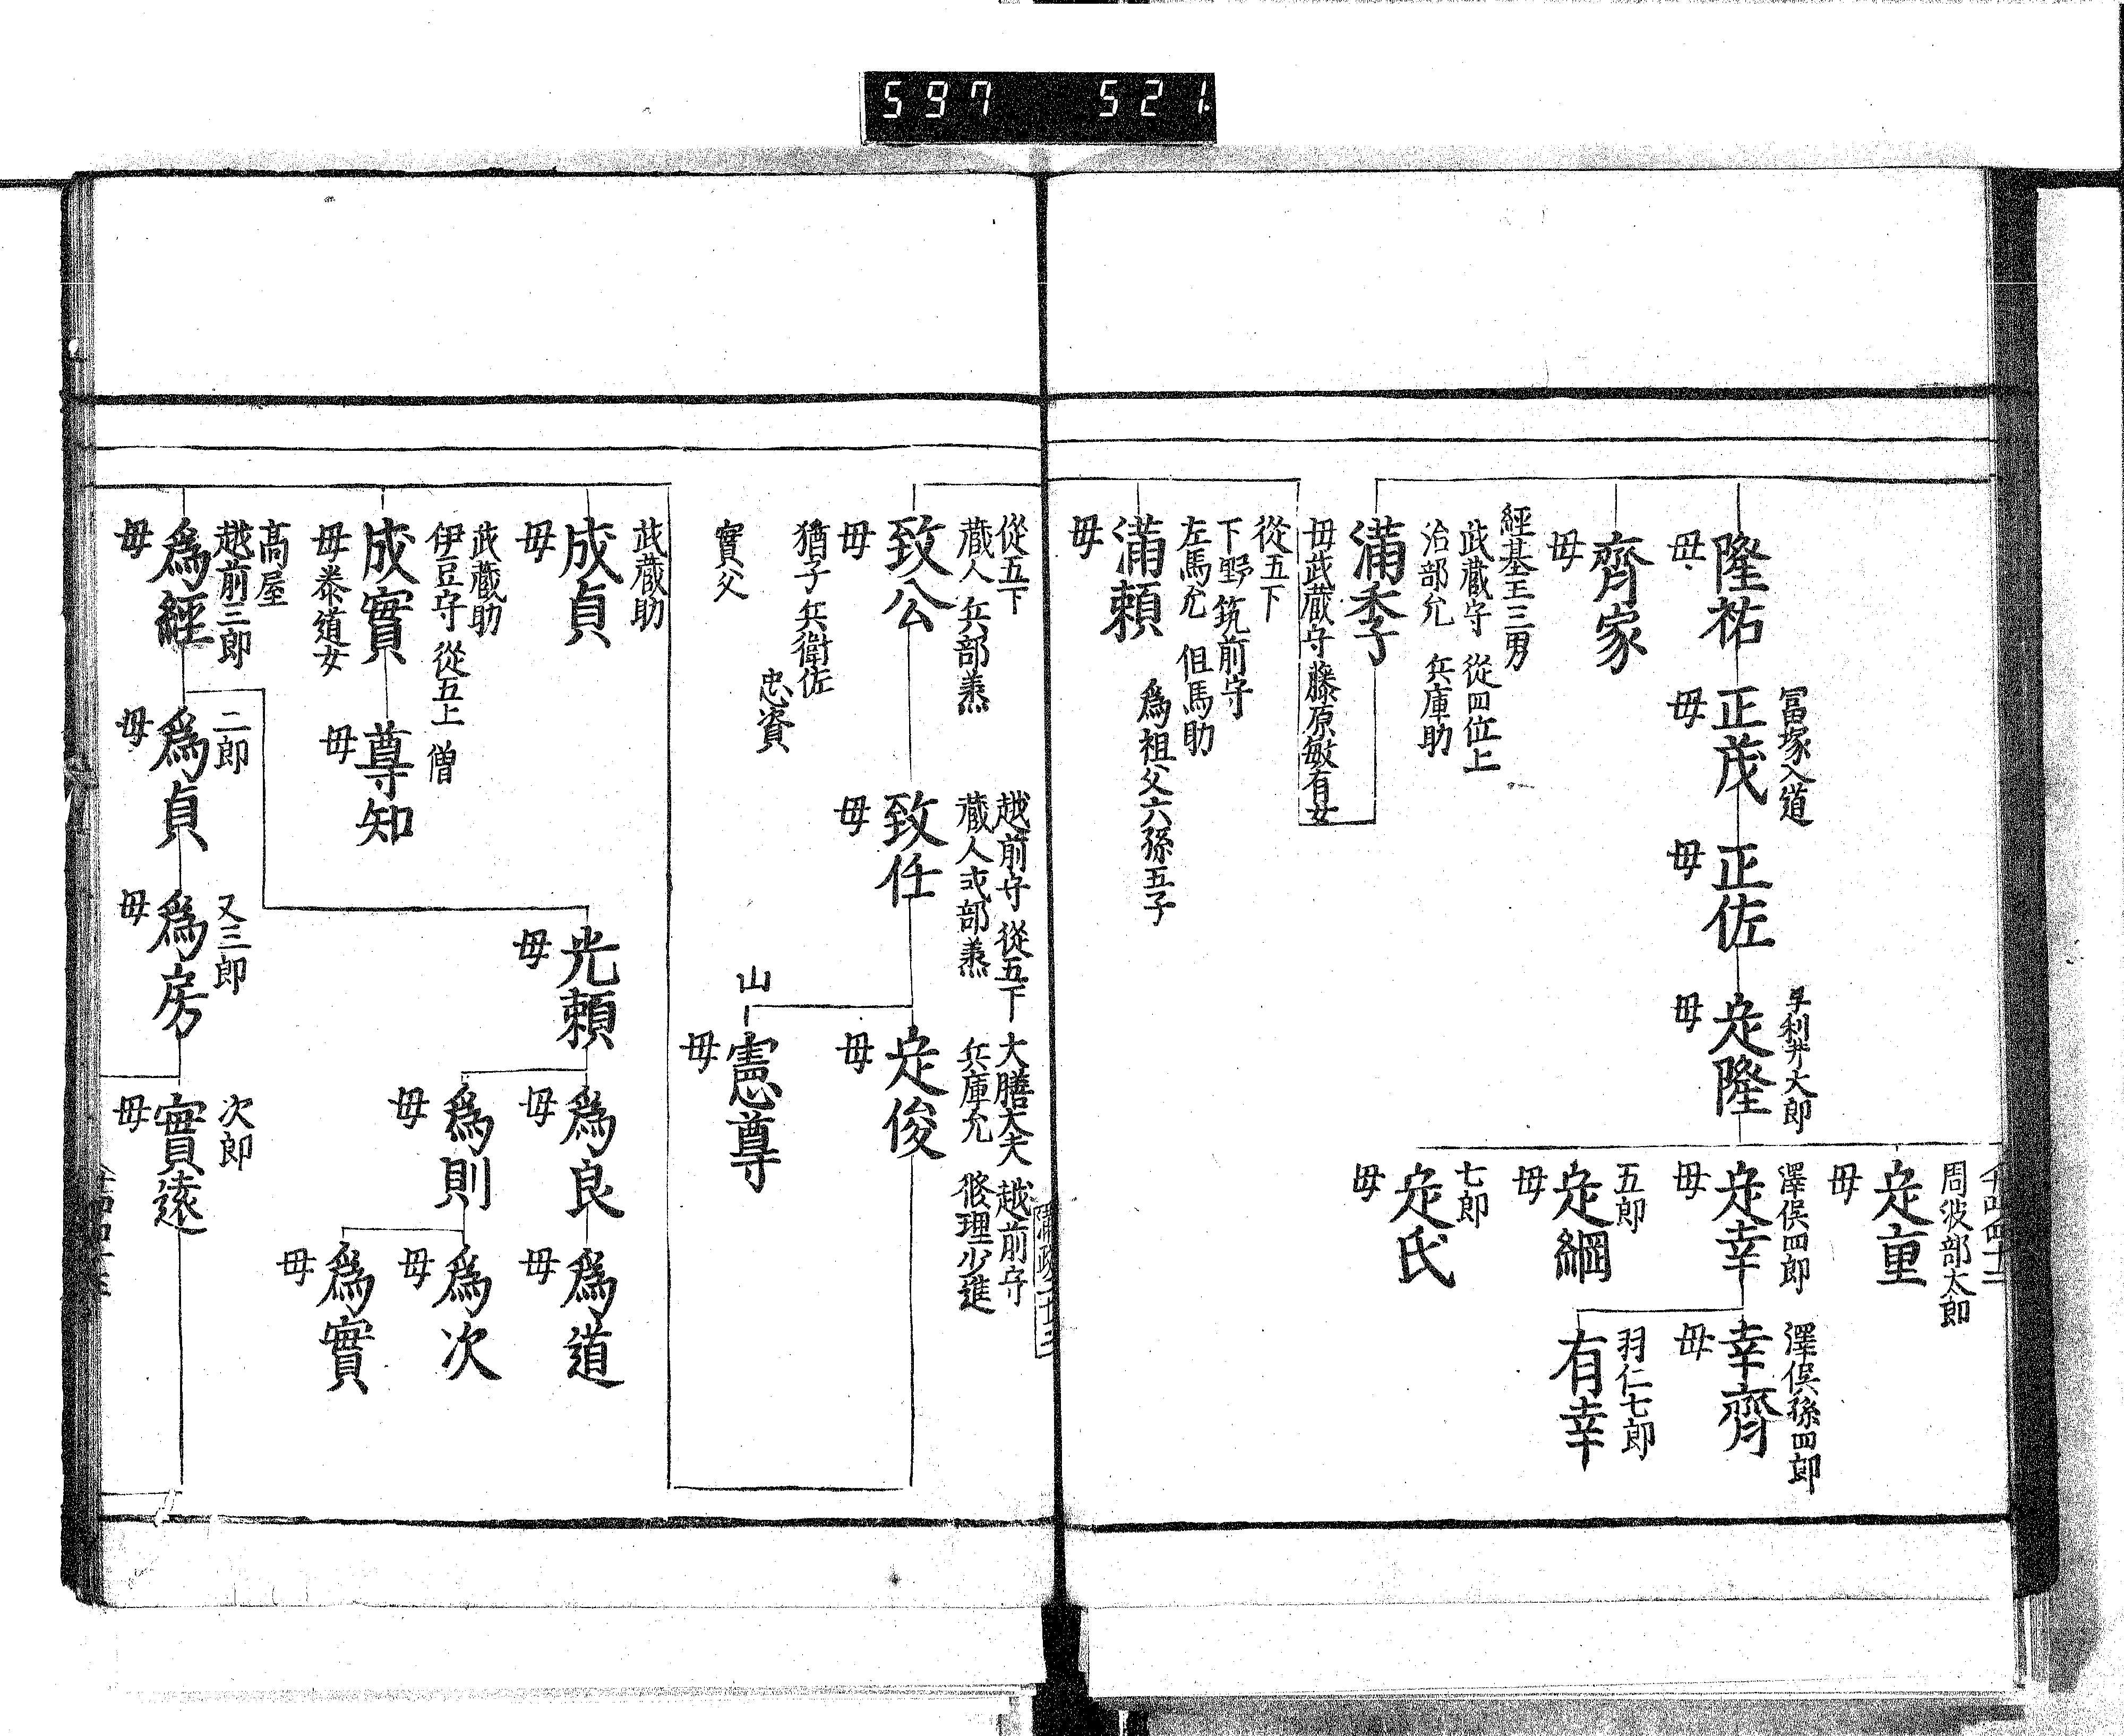 597 521
隆祐
母
冨塚入道
正茂
母
正佐
母
大郎
定隆
母
周波部太郎
定重
母
澤俣四郎
定幸
母
五郎
定綱
母
七郎
定氏
母
澤俣孫四郎
幸齊
母
羽仁七郎
有幸
齊家
母
經基王三男
武藏守 從四位上
治部允 兵庫助
滿季
母武藏守藤原敏有女
從五下
下野筑前守
左馬允 但馬助
滿頼
母
爲祖父六孫王子
從五下
藏人 兵部丞
致公
母
猶子 兵衛佐
忠資
實父
越前守 從五下
藏人式部丞
致任
母
大膳大夫 越前守
兵庫允 修理少進
定俊
母
山
憲尊
母
武藏助
成貞
母
武藏助
伊豆守 從五上
成實
母泰道女
僧
尊知
母
高屋
越前三郎
爲經
母
二郎
爲貞
母
又三郎
爲房
母
次郎
實遠
母
光頼
母
爲良
母
爲道
母
爲則
母
爲次
母
爲實
母